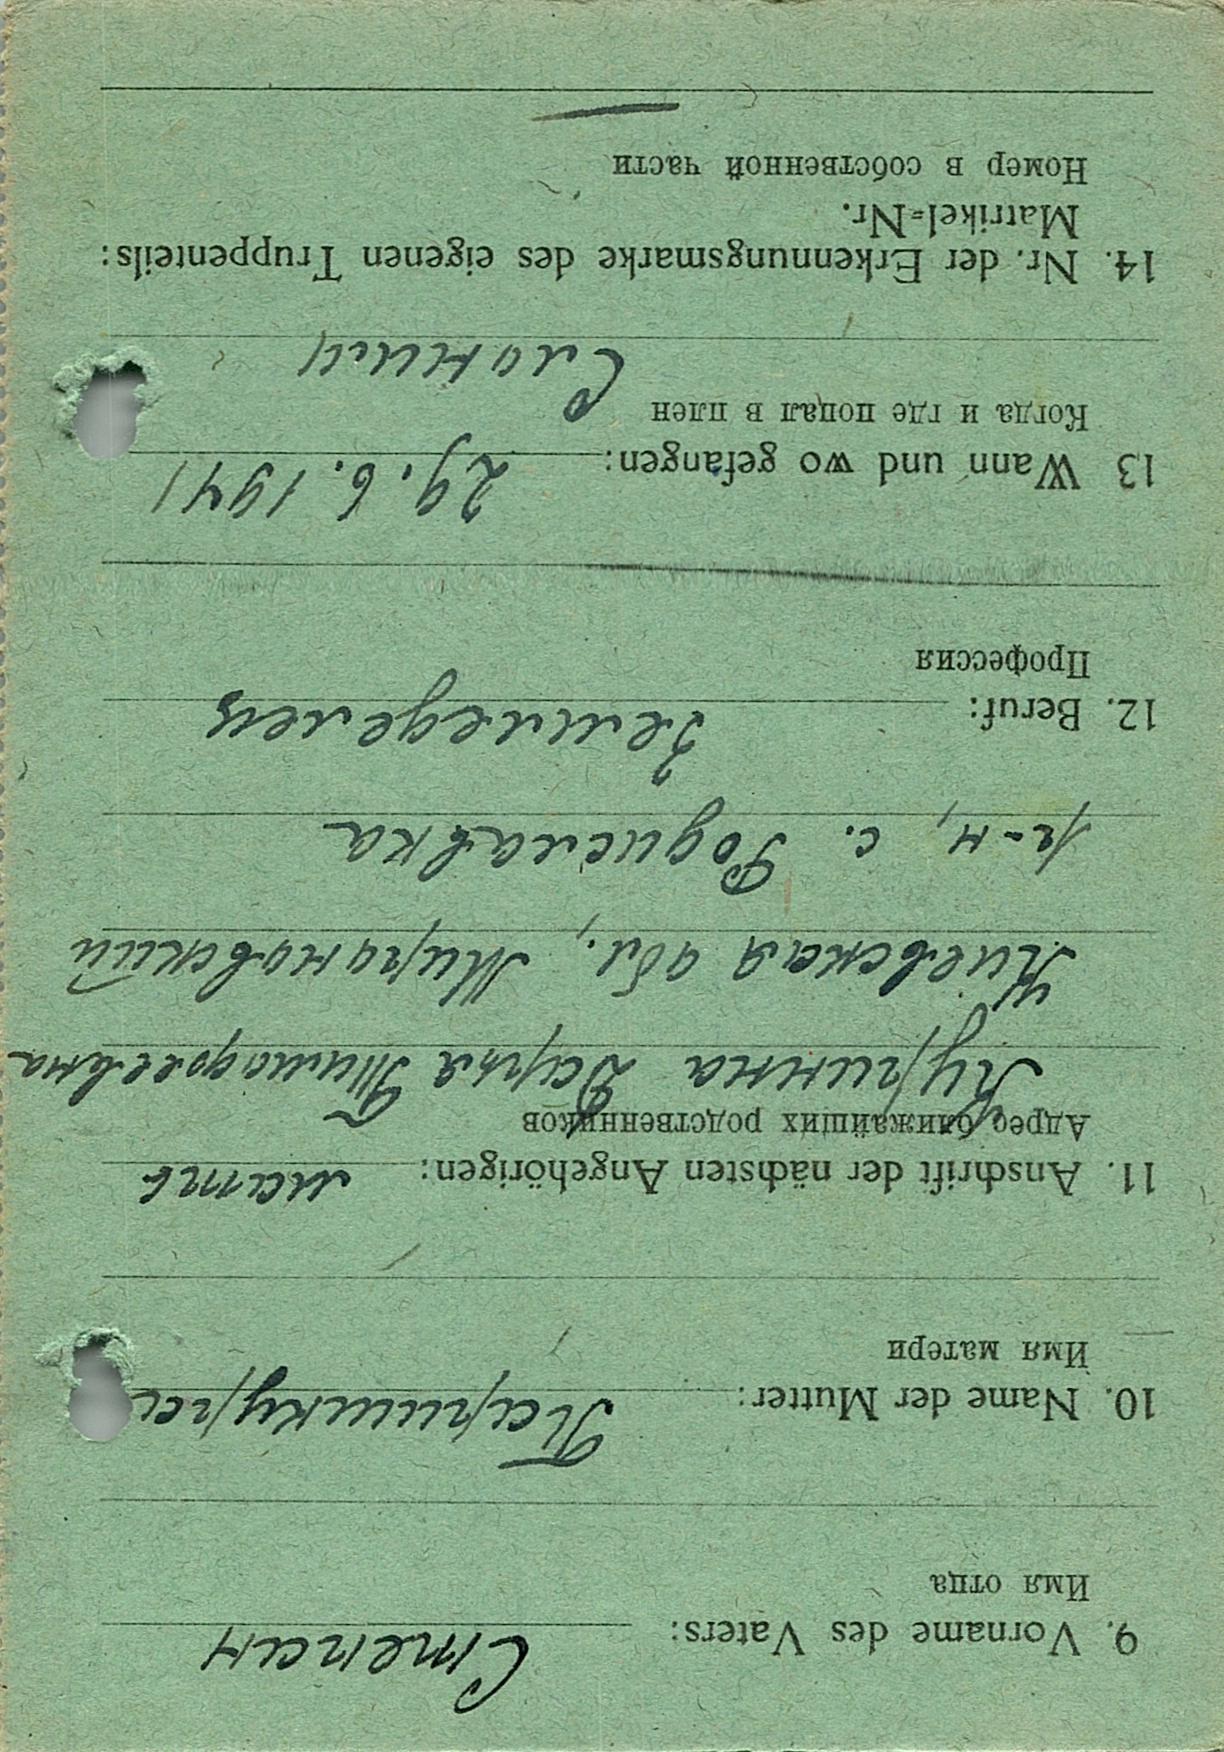 9. Vorname des Vaters: Степан
Имя отца
10. Name der Mutter: Паришкура
Имя матери
11. Anschrift der nächsten Angehörigen: мать
Адрес ближайших родственников
Дарья Тимофеевна
Киевская обл., Мироновский
р-н, с.
12. Beruf: Земледелец
Профессия
13 Wann und wo gefangen: 29. 6. 1941
Когда и где попал в плен Слоним
14. Nr. der Erkennungsmarke des eigenen Truppenteils:
Matrikel=Nr.
Номер в собственной части
—